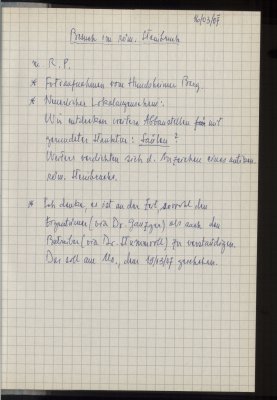 16/03/07
Besuch im röm. Steinbruch
m. R. P.
* Fotoaufnahmen vom Hundsheimer Berg.
* Neuerlicher Lokalaugenschein:
Wir entdecken weitere Abbaustellen mit
gerundeter Struktur: Säulen?
Weiters verdichten sich d. Anzeichen eines antiken
röm. Steinbruchs.
* Ich denke, es ist an der Zeit, sowohl den
Eigentümer (via Dr. ) als auch den
Betreiber (via Dr. ) zu verständigen.
Das soll am Mo., dem 19/03/07 geschehen.